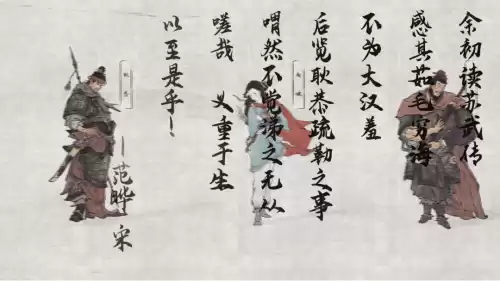 余初读苏武传
感其茹毛穷海
不为大汉羞
后览耿恭疏勒之事
喟然不觉涕之无从
嗟哉 义重于生
以至是乎！
—范晔 宋